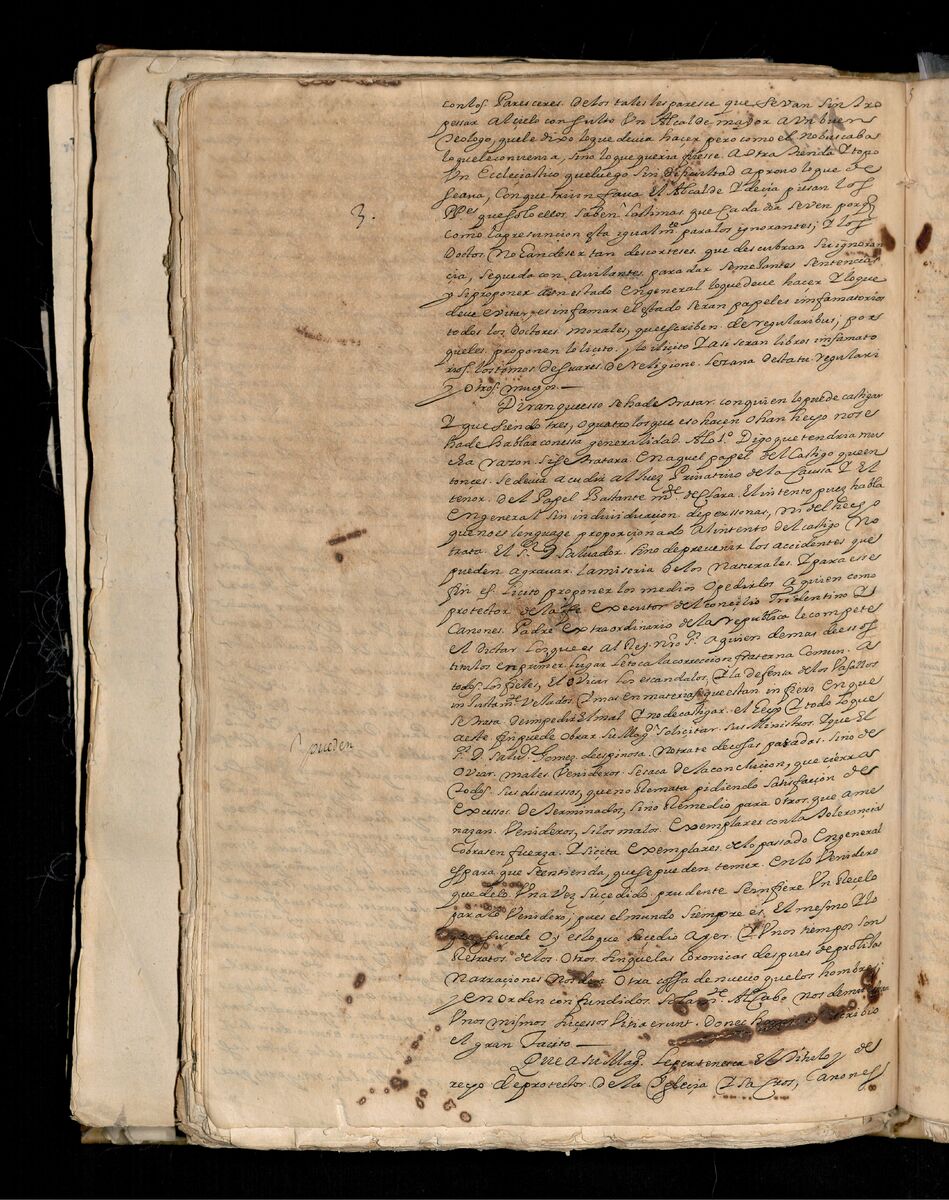 con los Paresceres de los tales les paresce que se van sin tro
pessar al cielo consulto Un Alcalde mayor a Un buen
Teologo, que le dixo lo que devia hacer pero como el no buscaba
lo que le convenia, sino lo que queria fuesse a otra tienda y topo
Un Ecclesiastico que luego sin dificultad aprovo lo que de
seava, con que triunfava El Alcalde y decia piesan los
P.es que solo ellos saben lastimas que cada dia se ven porq
3.
como la presuncion esta igualm.te para los ignorantes; y los
Doctos no han de ser tan descorteses que descubran su ignoran
cia, seguedo con avilantes para dar semejantes sentencias
y si proponer a Un estado en general lo que deve hacer y lo que
deve evitar, es infamar el estado seran papeles infamatorios
todos los Doctores Morales, que escriben de regularibus; por
que les proponen lo licito y lo ilicito y asi seran libros infamato
rios los tomos de Suares de religione Lezana de statu regulari
y otros muchos —
Diran que esso se ha de tratar con quien lo puede castigar
y que siendo tres, o quatro los que eso hacen o han hecho no se
ha de hablar con esta generalidad. A lo 1.º Digo que tendria mu
cha razon si se tratara en aquel papel del Castigo que en
tonces se devia acudir al Juez Privativo de la Causa y El
tenor del Papel Bastante m.te declara El intento pues habla
En general sin individuacion de perssonas, ni del hecho
que no es lenguage proporcionado al intento del castigo No
trata El S.r D Salvador sino de prevenir los accidentes que
pueden agravar la miseria de los Naturales y para esse
fin es licito proponer los medios o pedirlos a quien como
protector de la fe executor del Concilio Tridentino y
Canones Padre extraordinario de la republica le compete
El dictar los que es al Rey nro S.r a quien demas de essos
titulos en primer lugar le toca la correccion fraterna Comun a
todos los fieles, El oviar los escandalos, y la defensa de los Vasallos
injustam.te Vejados y mas en materias que estan in fieri en que
se trata de impedir El mal y no de castigar el hecho y todo lo que
a este fin puede obrar su Mag.d solicitar sus Ministros y que El
pueden
S.r D. Salv.r Gomez de espinosa No trate de cosas pasadas sino de
oviar males Venideros se saca de la conclucion, que cierra
todos sus discurssos, que no Remata pidiendo satisfacion de
excessos determinados, sino Remedio para otros que ame
nazan Venideros, si los malos Exemplares con la tolerancia
Cobrasen fuerza. y si cita exemplares de lo passado En general
es para que se entienda, que se pueden temer en lo Venidero
que de lo Una Vez sucedido prudente se infiere Un Recelo
para lo Venidero; pues el mundo siempre es El mesmo y lo
que sucede oy es lo que sucedio ayer y Unos tiempos son
Retratos de los otros sin que las Coronicas despues de prolijas
Narraciones nos den otra cossa de nuevo que los hombres
y en orden confundidos al Cabo nos demuestran
Unos mismos sucessos Vitia erunt Donec homines escribio
El gran Tacito —
Que a su Mag.d le pertenesca El titulo y de
recho de protector de la Iglecia y sacros, Canones